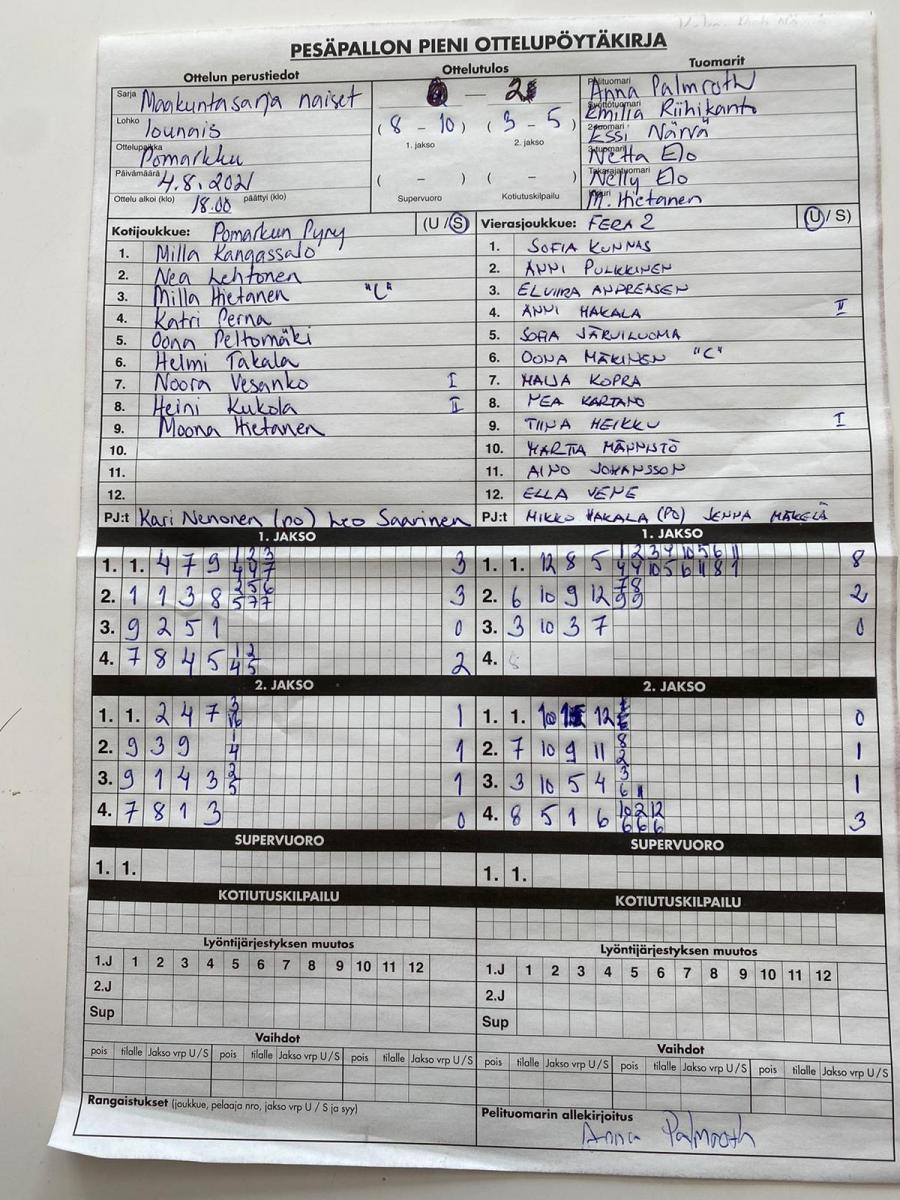 PESÄPALLON PIENI OTTELUPÖYTÄKIRJA
Ottelun perustiedot
Ottelutulos
Tuomarit
Sarja Maakuntasarja naiset
Lohko lounais
Ottelupaikka Pomarkku
Päivämäärä 4.8.2021
Ottelu alkoi (klo) 18.00 päättyi (klo)
0 — 2
(8 - 10) (3 - 5)
1. jakso 2. jakso
( - ) ( - )
Supervuoro Kotiutuskilpailu
Pelituomari Anna Palmroth
Syöttötuomari Emilia Riihikanto
2-tuomari Essi Närvä
3-tuomari Netta Elo
Takarajatuomari Nelly Elo
Kirjuri M. Hietanen
Kotijoukkue: Pomarkun Pyry (U / S)
1. Milla Kangassalo
2. Nea Lehtonen
3. Milla Hietanen "C"
4. Katri Perna
5. Oona Peltomäki
6. Helmi Takala
7. Noora Vesanko I
8. Heini Kukola II
9. Moona Hietanen
10.
11.
12.
PJ:t Kari Nenonen (po) Leo Saarinen
Vierasjoukkue: FERA 2 (U / S)
1. SOFIA KUNNAS
2. ANNI PULKKINEN
3. ELVIIRA ANDREASEN
4. ANNI HAKALA II
5. SOFIA JÄRVILUOMA
6. OONA MÄKINEN "C"
7. MAIJA KOPRA
8. MEA KARTANO
9. TIINA HEIKKU I
10. MARTTA MÄNNISTÖ
11. AINO JOHANSSON
12. ELLA VENE
PJ:t MIKKO HAKALA (PO) JENNA MÄKELÄ
1. JAKSO
1. 1. 4 7 9 1 2 3 3
4 4 7
2. 1 1 3 8 3 5 6 3
5 7 7
3. 9 2 5 1 0
4. 7 8 4 5 1 2 2
4 5
1. JAKSO
1. 1. 12 8 5 1 2 3 4 10 5 6 11 8
4 4 10 5 6 11 8 1
2. 6 10 9 12 7 8 2
9 9
3. 3 10 3 7 0
4. 8
2. JAKSO
1. 1. 2 4 7 3 1
2. 9 3 9 1 1
4
3. 9 1 4 3 2 1
5
4. 7 8 1 3 0
2. JAKSO
1. 1. 10 12 0
2. 7 10 9 11 8 1
2
3. 3 10 5 4 3 1
6 11
4. 8 5 1 6 10 2 12 3
6 6 6
SUPERVUORO
1. 1.
SUPERVUORO
1. 1.
KOTIUTUSKILPAILU
KOTIUTUSKILPAILU
Lyöntijärjestyksen muutos
1.J 1 2 3 4 5 6 7 8 9 10 11 12
2.J
Sup
Lyöntijärjestyksen muutos
1.J 1 2 3 4 5 6 7 8 9 10 11 12
2.J
Sup
Vaihdot
pois tilalle Jakso vrp U / S pois tilalle Jakso vrp U / S pois tilalle Jakso vrp U / S
Vaihdot
pois tilalle Jakso vrp U / S pois tilalle Jakso vrp U / S pois tilalle Jakso vrp U / S
Rangaistukset (joukkue, pelaaja nro, jakso vrp U / S ja syy)
Pelituomarin allekirjoitus
Anna Palmroth